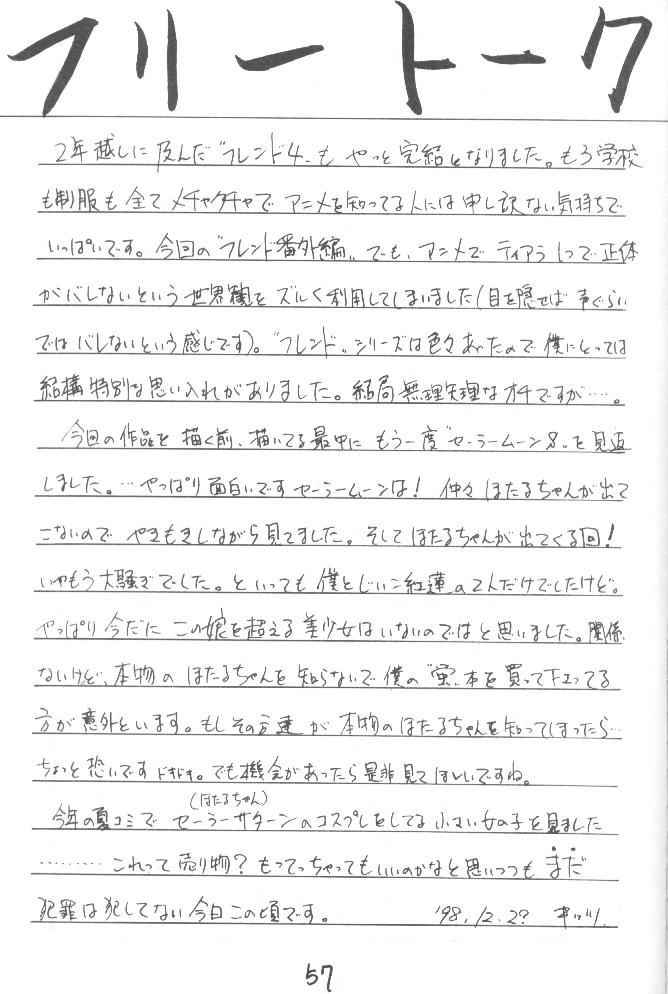 フリートーク
2年越しに及んだ"フレンド4"もやっと完結となりました。もう学校
も制服も全てメチャクチャでアニメを知ってる人には申し訳ない気持ちで
いっぱいです。今回の"フレンド番外編"でも、アニメでティアラ1つで正体
がバレないという世界観をズルく利用してしまいました(目を隠せば声ぐらい
ではバレないという感じです)。"フレンド"シリーズは色々あったので僕にとっては
結構特別な思い入れがありました。結局無理矢理なオチですが…。
今回の作品を描く前、描いてる最中にもう一度"セーラームーンS"を見返
しました。…やっぱり面白いですセーラームーンは!仲々ほたるちゃんが出て
こないのでやきもきしながら見てました。そしてほたるちゃんが出てくる回!
いやもう大騒ぎでした。といっても僕とじいこ紅蓮の2人だけでしたけど。
やっぱり今だにこの娘を超える美少女はいないのではと思いました。関係
ないけど、本物のほたるちゃんを知らないで僕の"蛍"本を買って下さってる
方が意外といます。もしその方達が本物のほたるちゃんを知ってしまったら…
ちょっと恐いですドキドキ。でも機会があったら是非見てほしいですね。
(ほたるちゃん)
今年の夏コミでセーラーサターンのコスプレをしてる小さい女の子を見ました
………これって売り物?もってっちゃってもいいのかなと思いつつもまだ
犯罪は犯してない今日この頃です。 '98.12.2?
57